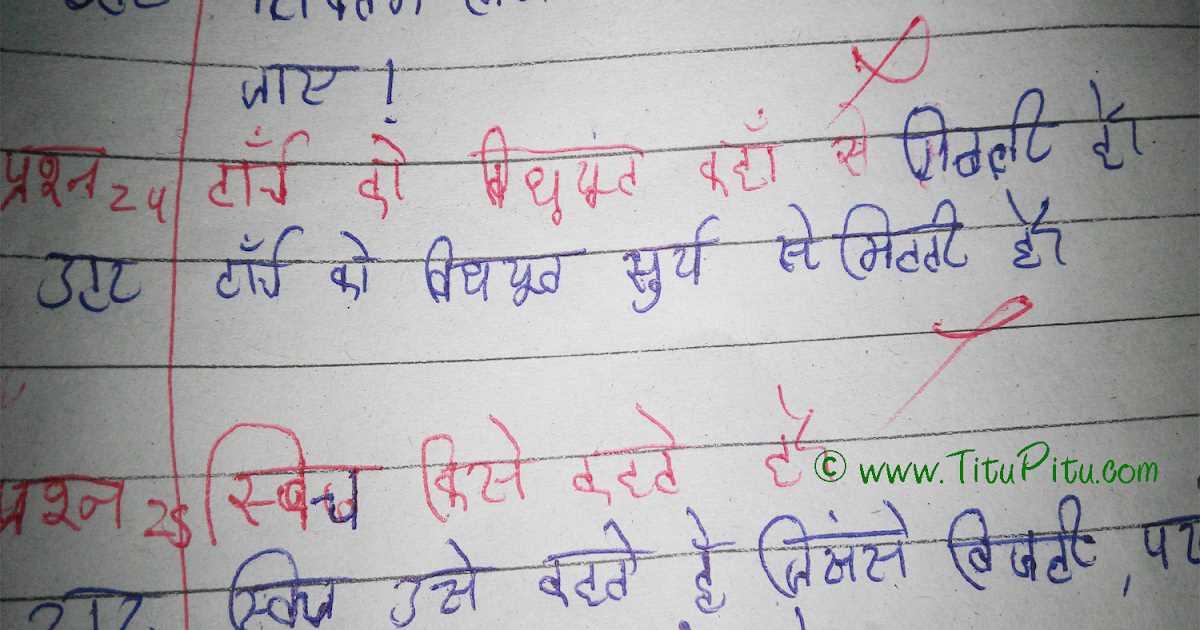 जाए !
प्रश्न 24 टॉर्च को विधयूत कहाँ से मिलती है।
उत्तर टॉर्च को विधयूत सुर्य से मिलती है।
प्रश्न 25 स्विच किसे कहते है
© www.TituPitu.com
स्विच उसे कहते है जिससे बिजली,